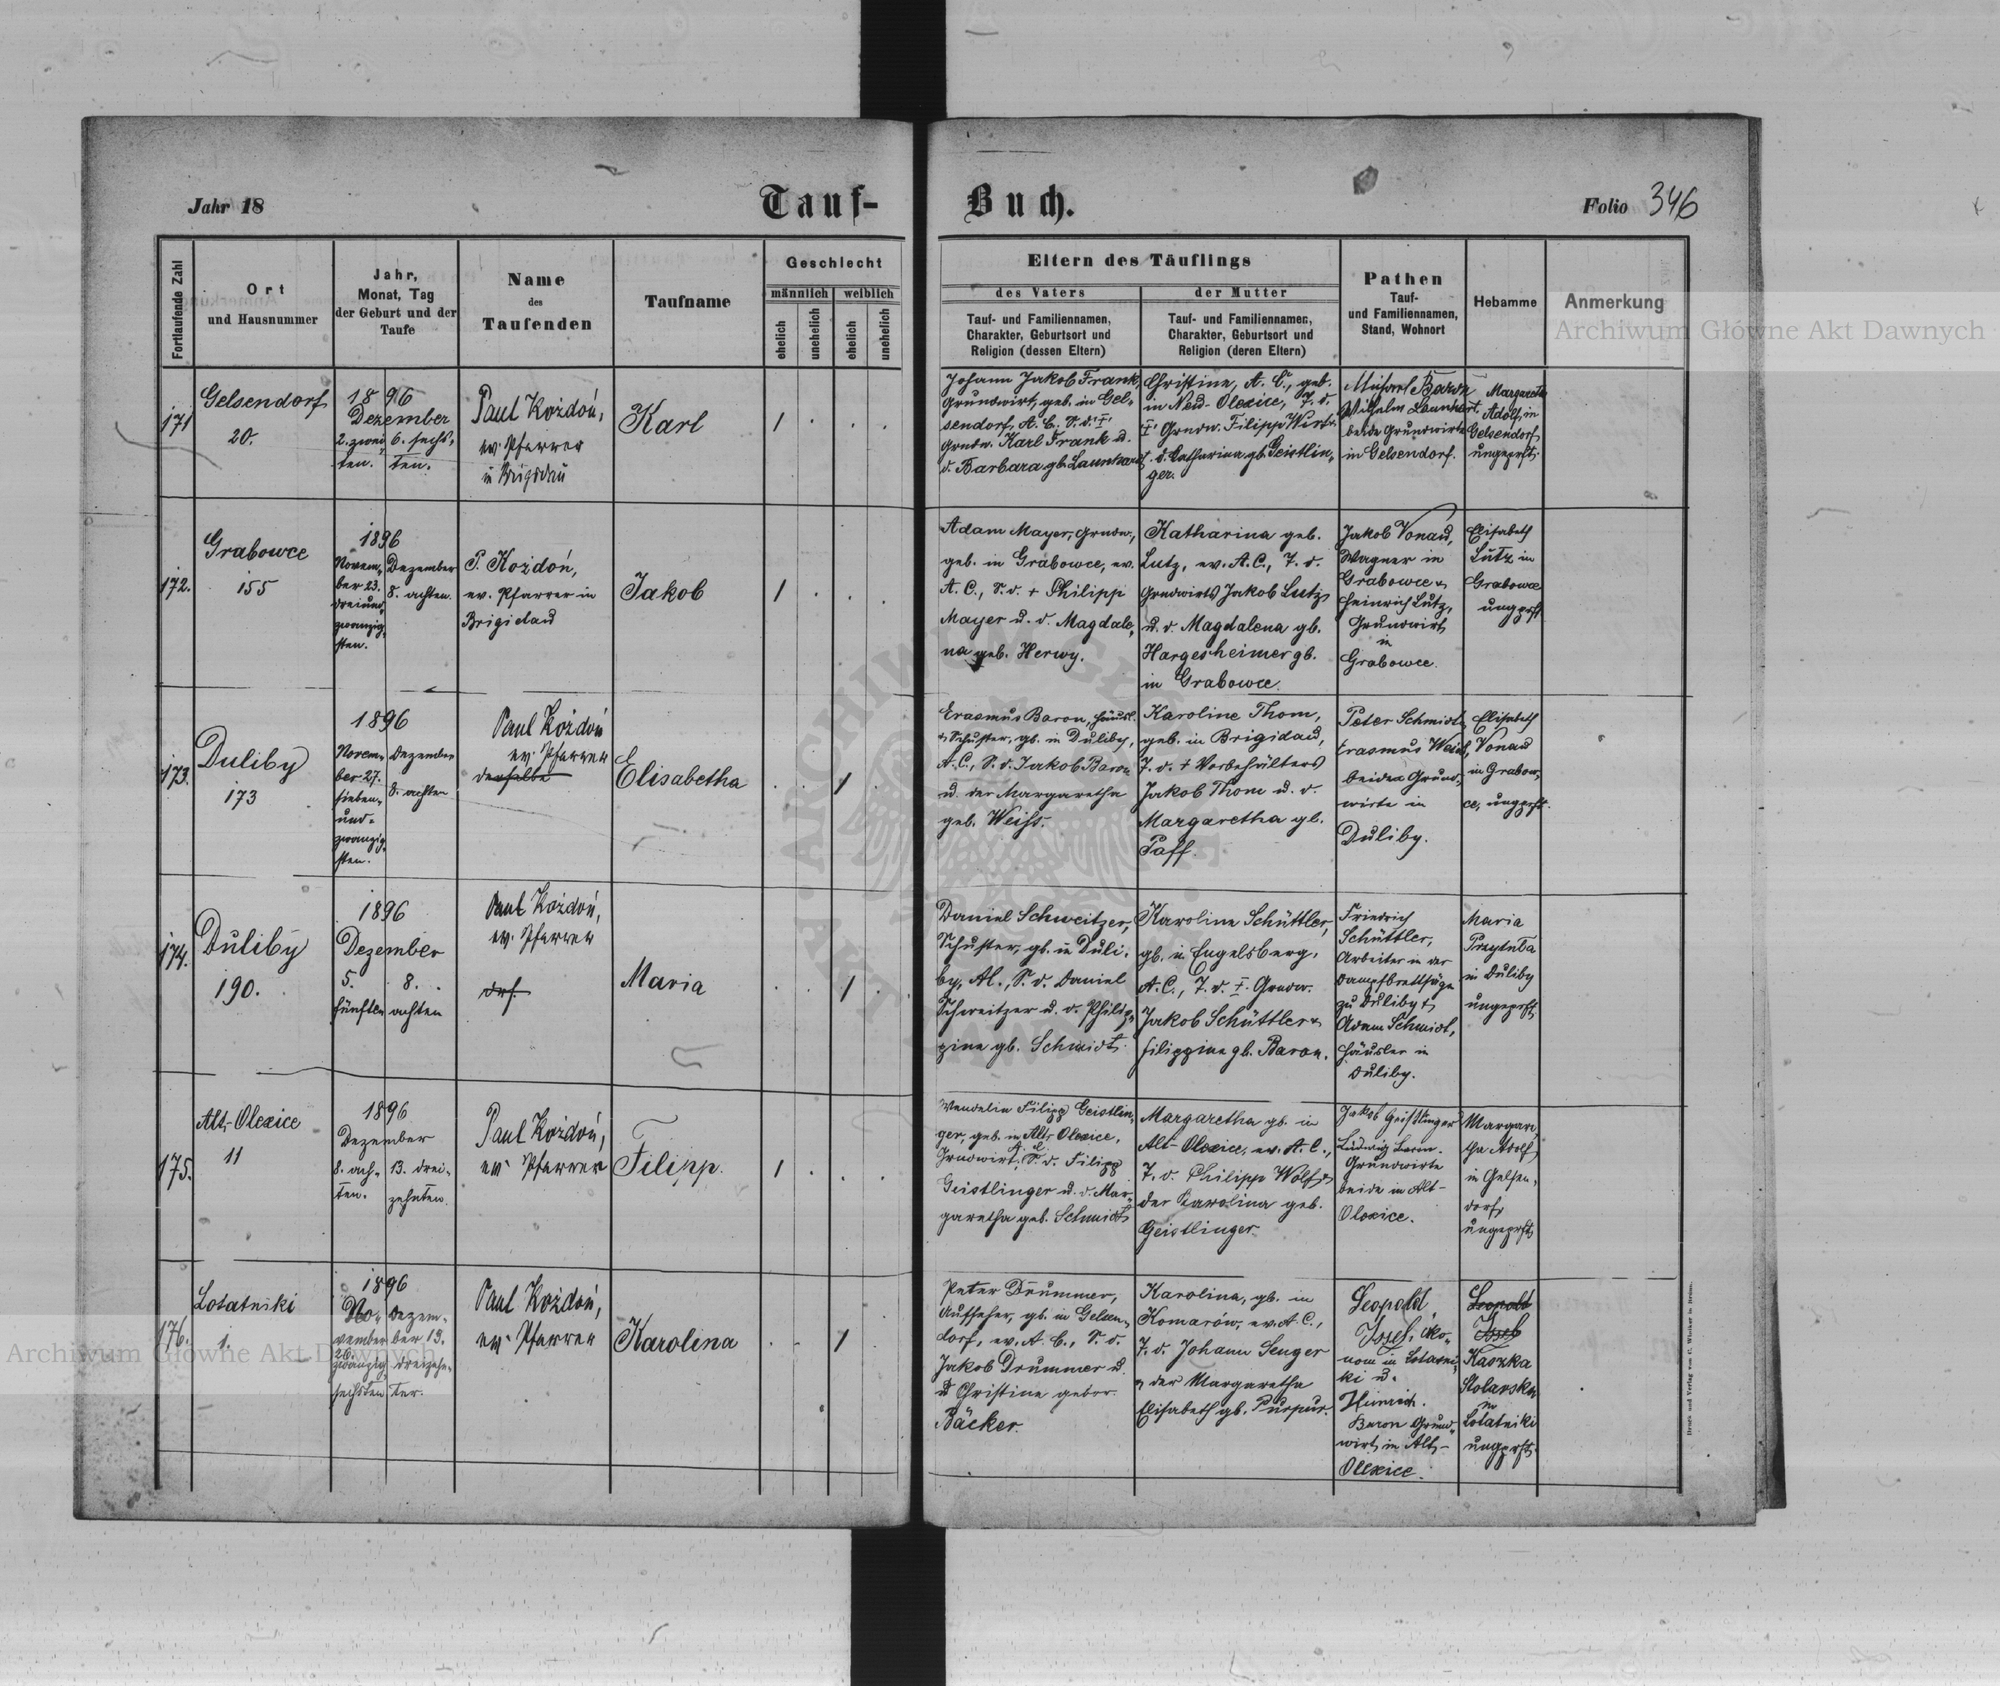 Jahr 18
Tauf-
Buch.
Folio 346
Fortlaufende Zahl
Ort
und Hausnummer
Jahr,
Monat, Tag
der Geburt und der
Taufe
Name
des
Taufenden
Taufname
Geschlecht
männlich
weiblich
ehelich
unehelich
ehelich
unehelich
Eltern des Täuflings
des Vaters
Tauf- und Familiennamen,
Charakter, Geburtsort und
Religion (dessen Eltern)
der Mutter
Tauf- und Familiennamen,
Charakter, Geburtsort und
Religion (deren Eltern)
Pathen
Tauf-
und Familiennamen,
Stand, Wohnort
Hebamme
Anmerkung
Archiwum Główne Akt Dawnych
171
Gelsendorf
20.
1896
Dezember
2. zwei-
ten.
6. sechs-
ten.
Paul Kożdoń,
ev. Pfarrer
in Brigidau
Karl
1
Johann Jakob Frank,
Grundwirt, geb. in Gel-
sendorf, A. C. S. d. I
Grndw. Karl Frank u.
d. Barbara gb. Launhardt
Christine, A. C., geb.
in Neu-Olexice, T. d.
I Grndw. Filipp Wirt
u. d. Catharina gb. Geistlin-
ger.
Michael Baron
Wilhelm Launhart,
beide Grundwirte
in Gelsendorf.
Margareta
Adolf, in
Gelsendorf
ungeprft.
172.
Grabowce
155
1896
Novem-
ber 23.
dreiund-
zwanzig-
sten.
Dezember
8. achten.
P. Kożdoń,
ev. Pfarrer in
Brigidau
Jakob
1
Adam Mayer, Grndw.,
geb. in Grabowce, ev.
A. C., S. d. + Philipp
Mayer u. d. Magdale-
na geb. Herwy.
Katharina geb.
Lutz, ev. A. C., T. d.
Grndwirts Jakob Lutz
u. d. Magdalena gb.
Hargesheimer gb.
in Grabowce.
Jakob Vonau,
Wagner in
Grabowce &
Heinrich Lutz,
Grundwirt
in
Grabowce.
Elisabeth
Lutz in
Grabowce
ungeprft
173.
Duliby
173
1896
Novem-
ber 27.
sieben-
und-
zwanzig-
sten.
Dezember
8. achten
Paul Kożdoń
ev. Pfarrer
derselbe
Elisabetha
1
Erasmus Baron, Häusl.
& Schuster, gb. in Duliby,
A. C., S. d. Jakob Baron
u. der Margaretha
geb. Weiss.
Karoline Thom,
geb. in Brigidau,
T. d. + Vorbehälters
Jakob Thom u. d.
Margaretha gb.
Paff.
Peter Schmidt,
Erasmus Weiß,
beide Grund-
wirte in
Duliby.
Elisabeth
Vonau
in Grabow-
ce, ungeprft.
174.
Duliby
190.
1896
Dezember
5.
fünften
8.
achten
Paul Kożdoń,
ev. Pfarrer
drs.
Maria
1
Daniel Schweitzer,
Schuster, gb. in Duli-
by, AC., S. d. Daniel
Schweitzer u. d. Philip-
pine gb. Schmidt.
Karoline Schüttler,
gb. in Engelsberg,
A. C., T. d. I. Grndw.
Jakob Schüttler &
Filippine gb. Baron.
Friedrich
Schüttler,
Arbeiter in der
Dampfbrettsäge
zu Duliby &
Adam Schmidt,
Häusler in
Duliby.
Maria
Przytuła
in Duliby
ungeprft
175.
Alt-Olexice
11
1896
Dezember
8. ach-
ten.
13. drei-
zehnten.
Paul Kożdoń,
ev. Pfarrer
Filipp.
1
Wendelin Filipp Geistlin-
ger, geb. in Alt-Olexice,
Grndwirt, S. d. Filipp
Geistlinger u. d. Mar-
garetha geb. Schmidt
Margaretha gb. in
Alt-Olexice, ev. A. C.,
T. d. Philipp Wolf &
der Karolina geb.
Geistlinger.
Jakob Geistlinger
Ludwig Baron.
Grundwirte
beide in Alt-
Olexice.
Margare-
tha Adolf
in Gelsen-
dorf,
ungeprft
176.
Lotatniki
1.
1896
No-
vember
26.
zwanzig
sechsten
Dezem-
ber 13.
dreizehn-
ter.
Paul Kożdoń,
ev. Pfarrer
Karolina
1
Peter Drummer,
Aufseher, gb. in Gelsen-
dorf, ev. A. C., S. d.
Jakob Drummer u.
d. Christine gebor.
Bäcker.
Karolina, gb. in
Komarów, ev. A. C.,
T. d. Johann Senger
& der Margaretha
Elisabeth gb. Purpur.
Leopold
Jssef, Öko-
nom in Lotatni-
ki u.
Heinrich
Baron Grund-
wirt in Alt-
Olexice.
Leopold
Jssef
Kaszka
Stolarska
in
Lotatniki
ungeprft.
Archiwum Główne Akt Dawnych